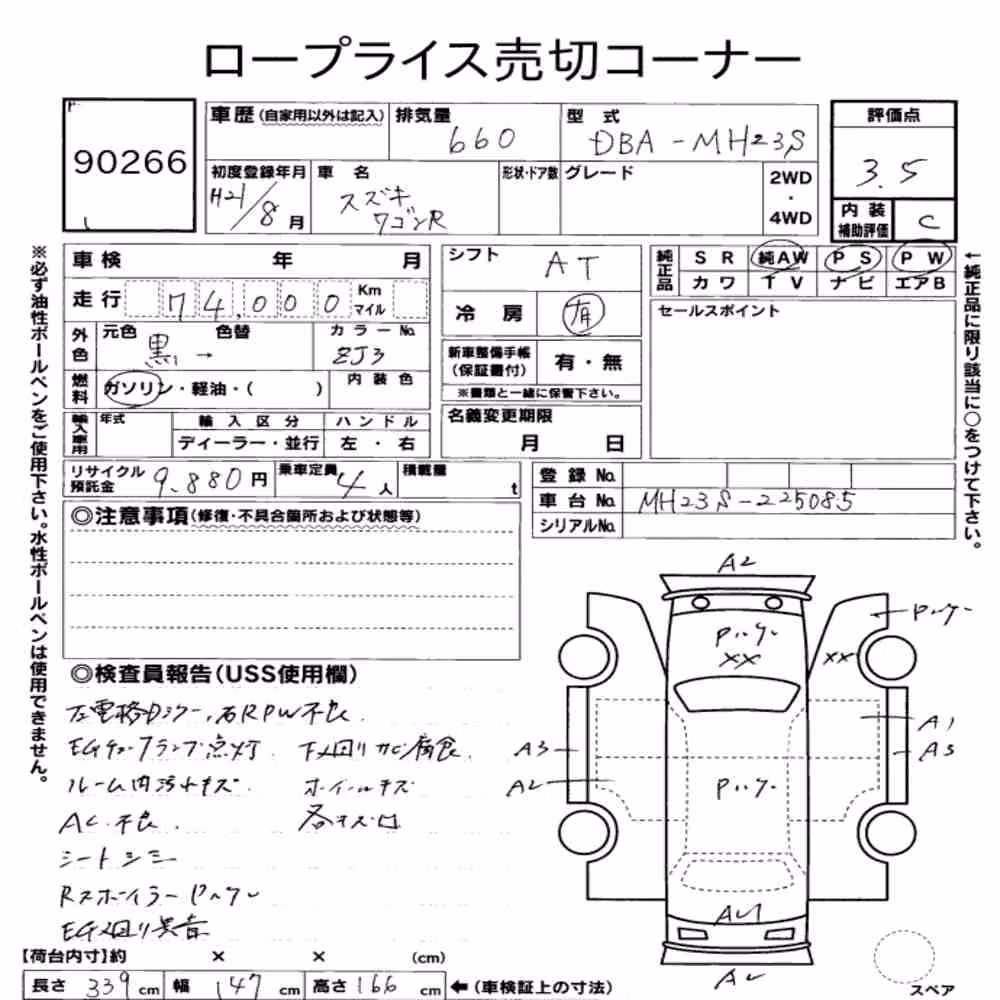 ロープライス売切コーナー
90266
車歴(自家用以外は記入) 排気量 660 型式 DBA-MH23S
評価点 3.5
初度登録年月 H21/8月 車名 スズキ ワゴンR 形状・ドア数 グレード 2WD・4WD
内装補助評価 C
※必ず油性ボールペンをご使用下さい。水性ボールペンは使用できません。
車検 年 月
走行 74,000 Km マイル
外色 元色 黒 → 色替 カラーNo. ZJ3
燃料 ガソリン・軽油・( ) 内装色
輸入車用 年式 輸入区分 ハンドル
ディーラー・並行 左・右
シフト AT
冷房 有
新車整備手帳(保証書付) 有・無
※書類と一緒に保管下さい。
名義変更期限
月 日
純正品 SR 純AW PS PW
カワ TV ナビ エアB
セールスポイント
←純正品に限り該当に○をつけて下さい。
リサイクル預託金 9,880円 乗車定員 4人 積載量 t
登録No.
車台No. MH23S-225085
シリアルNo.
◎注意事項(修復・不具合箇所および状態等)
◎検査員報告(USS使用欄)
左電格ミラー、右RPW不良.
EGチェックランプ点灯. 下廻りサビ腐食.
ルーム内汚れキズ ホイールキズ
AC不良. 各キズ凹
シートシミ
RスポイラーPハゲ
EG廻り異音
A2
Pハゲ
Pハゲ
XX
XX
A1
A3
A3
A2
Pハゲ
AU
A2
スペア
【荷台内寸】約 × × (cm)
長さ 339 cm 幅 147 cm 高さ 166 cm ←(車検証上の寸法)